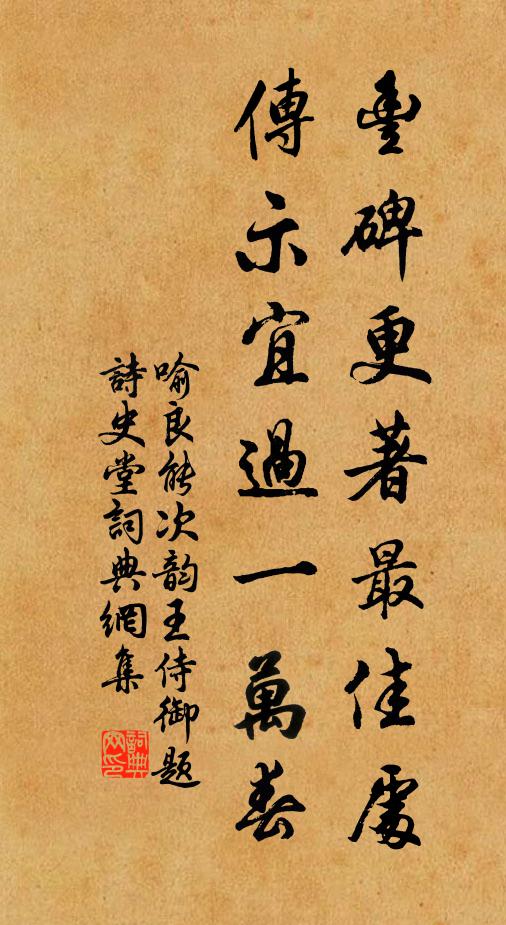 豐碑更著最佳處
傳示宜過一萬春
喻良能次韵王侍御題
詩史堂詞典網集
詞典网印